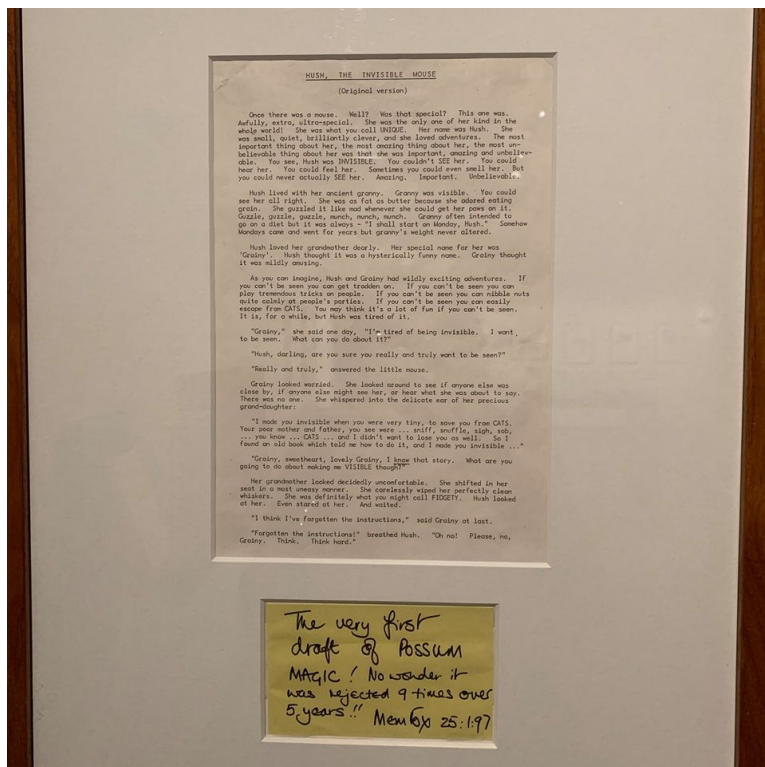 HUSH, THE INVISIBLE MOUSE
(Original version)
Once there was a mouse. Well? Was that special? This one was.
Awfully, extra, ultra-special. She was the only one of her kind in the
whole world! She was what you call UNIQUE. Her name was Hush. She
was small, quiet, brilliantly clever, and she loved adventures. The most
important thing about her, the most amazing thing about her, the most un-
believable thing about her was that she was important, amazing and unbeliev-
able. You see, Hush was INVISIBLE. You couldn't SEE her. You could
hear her. You could feel her. Sometimes you could even smell her. But
you could never actually SEE her. Amazing. Important. Unbelievable.
Hush lived with her ancient granny. Granny was visible. You could
see her all right. She was as fat as butter because she adored eating
grain. She guzzled it like mad whenever she could get her paws on it.
Guzzle, guzzle, guzzle, munch, munch, munch. Granny often intended to
go on a diet but it was always - "I shall start on Monday, Hush." Somehow
Mondays came and went for years but granny's weight never altered.
Hush loved her grandmother dearly. Her special name for her was
'Grainy'. Hush thought it was a hysterically funny name. Grainy thought
it was mildly amusing.
As you can imagine, Hush and Grainy had wildly exciting adventures. If
you can't be seen you can get trodden on. If you can't be seen you can
play tremendous tricks on people. If you can't be seen you can nibble nuts
quite calmly at people's parties. If you can't be seen you can easily
escape from CATS. You may think it's a lot of fun if you can't be seen.
It is, for a while, but Hush was tired of it.
"Grainy," she said one day, "I'm tired of being invisible. I want
to be seen. What can you do about it?"
"Hush, darling, are you sure you really and truly want to be seen?"
"Really and truly," answered the little mouse.
Grainy looked worried. She looked around to see if anyone else was
close by, if anyone else might see her, or hear what she was about to say.
There was no one. She whispered into the delicate ear of her precious
grand-daughter:
"I made you invisible when you were very tiny, to save you from CATS.
Your poor mother and father, you see were ... sniff, snuffle, sigh, sob,
... you know ... CATS ... and I didn't want to lose you as well. So I
found an old book which told me how to do it, and I made you invisible ..."
"Grainy, sweetheart, lovely Grainy, I know that story. What are you
going to do about making me VISIBLE though?"
Her grandmother looked decidedly uncomfortable. She shifted in her
seat in a most uneasy manner. She carelessly wiped her perfectly clean
whiskers. She was definitely what you might call FIDGETY. Hush looked
at her. Even stared at her. And waited.
"I think I've forgotten the instructions," said Grainy at last.
"Forgotten the instructions!" breathed Hush. "Oh no! Please, no,
Grainy. Think. Think hard."
The very first
draft of POSSUM
MAGIC! No wonder it
was rejected 9 times over
5 years!! Mem Fox 25:1:97